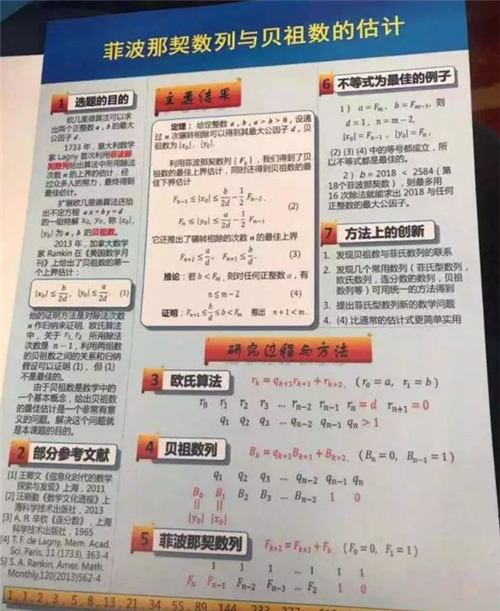 菲波那契数列与贝祖数的估计
1 选题的目的
欧几里德算法可以求
出两个正整数 a, b 的最大
公因子 d。
1733 年，意大利数学
家 Lagny 首次利用菲波那
契数列给出算法中所用除法
次数 n 的上界的估计，经
过众多人的努力，最终得到
最佳估计。
扩展欧几里德算法还给
出不定方程 ax + by = d
的一组特解 x₀, y₀，称 |x₀|,
|y₀| 为 a, b 的贝祖数。
2013 年，加拿大数学
家 Rankin 在《美国数学月
刊》上给出了贝祖数的第一
个上界估计：
|x₀| ≤ b/2d, |y₀| ≤ a/2d (1)
他的证明方法是对除法次数
n 作归纳来证明。欧氏算法
中，关于 r₁, r₂ 所用除法
次数是 n − 1，利用两组数
的贝祖数之间的关系和归纳
假设可以证明 (1)，但 (1)
不是最佳的。
由于贝祖数是数学中的
一个基本概念，给出贝祖数
的最佳估计是一个非常有意
义的问题。解决这个问题就
是本课题的目的。
2 部分参考文献
[1] 王鄂文《信息化时代的数学
探索与发现》上海，2011
[2] 汪晓勤《数学文化透视》上
海科学技术出版社，2013
[3] A. Я. 辛钦《连分数》，上海
科学技术出版社，1965
[4] T. F. de Lagny, Mem. Acad.
Sci. Paris, 11 (1733), 363-4
[5] S. A. Rankin, Amer. Math.
Monthly,120(2013)562-4
主要结果
定理：给定整数 a, b, a > b > 0，设通
过 n 次辗转相除可以得到其最大公因子 d，贝
祖数为 |x₀|, |y₀|。
利用菲波那契数列 {Fₖ}，我们得到了贝
祖数的最佳上界估计，同时还得到贝祖数的最
佳下界估计
Fₙ₋₁ ≤ |x₀| ≤ b/2d − 1/2 Fₙ₋₂,
(2)
Fₙ ≤ |y₀| ≤ a/2d − 1/2 Fₙ₋₁.
它还推出了辗转相除的次数 n 的最佳上界
Fₙ₊₂ ≤ a/d, Fₙ₊₁ ≤ b/d. (3)
推论：若 b < Fₘ，则对任何正整数 a，有
n ≤ m − 2 (4)
证明：Fₙ₊₁ ≤ b/d ≤ b < Fₘ 推出 n + 1 < m.
研究过程与方法
3 欧氏算法 rₖ = qₖ₊₁rₖ₊₁ + rₖ₊₂, (r₀ = a, r₁ = b)
r₀ r₁ r₂ r₃ … rₙ₋₂ rₙ₋₁ rₙ = d rₙ₊₁ = 0
q₁ q₂ q₃ … qₙ₋₂ qₙ₋₁ qₙ > 1
4 贝祖数列 Bₖ = qₖ₊₁Bₖ₊₁ + Bₖ₊₂, (Bₙ = 0, Bₙ₋₁ = 1)
q₁ q₂ q₃ … qₙ₋₂ qₙ₋₁ qₙ
B₀ B₁ B₂ B₃ … Bₙ₋₂ 1 0
|| ||
|y₀| |x₀|
5 菲波那契数列 Fₖ₊₂ = Fₖ₊₁ + Fₖ, (F₀ = 0, F₁ = 1)
1 1 1 … 1 1 1
Fₙ Fₙ₋₁ Fₙ₋₂ Fₙ₋₃ … F₂ 1 0
6 不等式为最佳的例子
1） a = Fₘ, b = Fₘ₋₁, 则
d = 1, n = m − 2,
|x₀| = Fₙ₋₁, |y₀| = Fₙ.
(2) (3) (4) 中的等号都成立，所
以不等式都是最佳的。
2）b = 2018 < 2584（第
18个菲波那契数），则最多用
16 次除法就能求出 2018 与任何
正整数的最大公因子。
7 方法上的创新
1. 发现贝祖数与菲氏数列的联系
2. 发现几个常用数列（菲氏型数列，
欧氏数列，连分数的数列，贝祖
数列等）可用统一的方法得到
3. 提出菲氏型数列新的数学问题
4. (4) 比通常的估计式更简单实用
1, 1, 2, 3, 5, 8, 13, 21, 34, 55, 89, 144, 233, 377